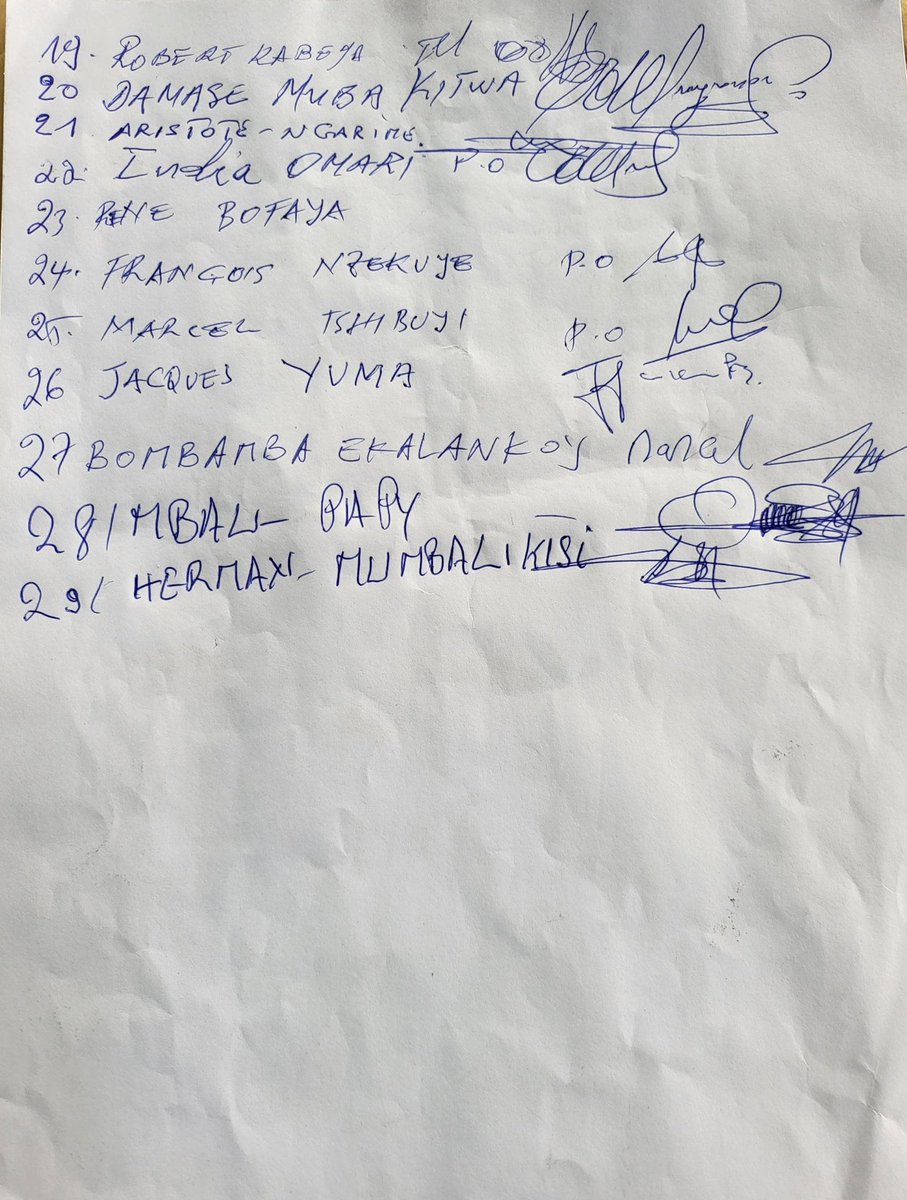 19. ROBERT KABEYA
20 DAMASE MUBA KITWA
21 ARISTOTE-NGARIME.
22. India OMARI P.O
23. RENE BOFAYA
24. FRANGOIS NZEKUYE P.O
25. MARCEL TSHIBUYI P.O
26 JACQUES YUMA
27 BOMBAMBA EKALANKOY Marcel
28/ MBALI- PAPY
29/ HERMAN- MUMBALIKISI